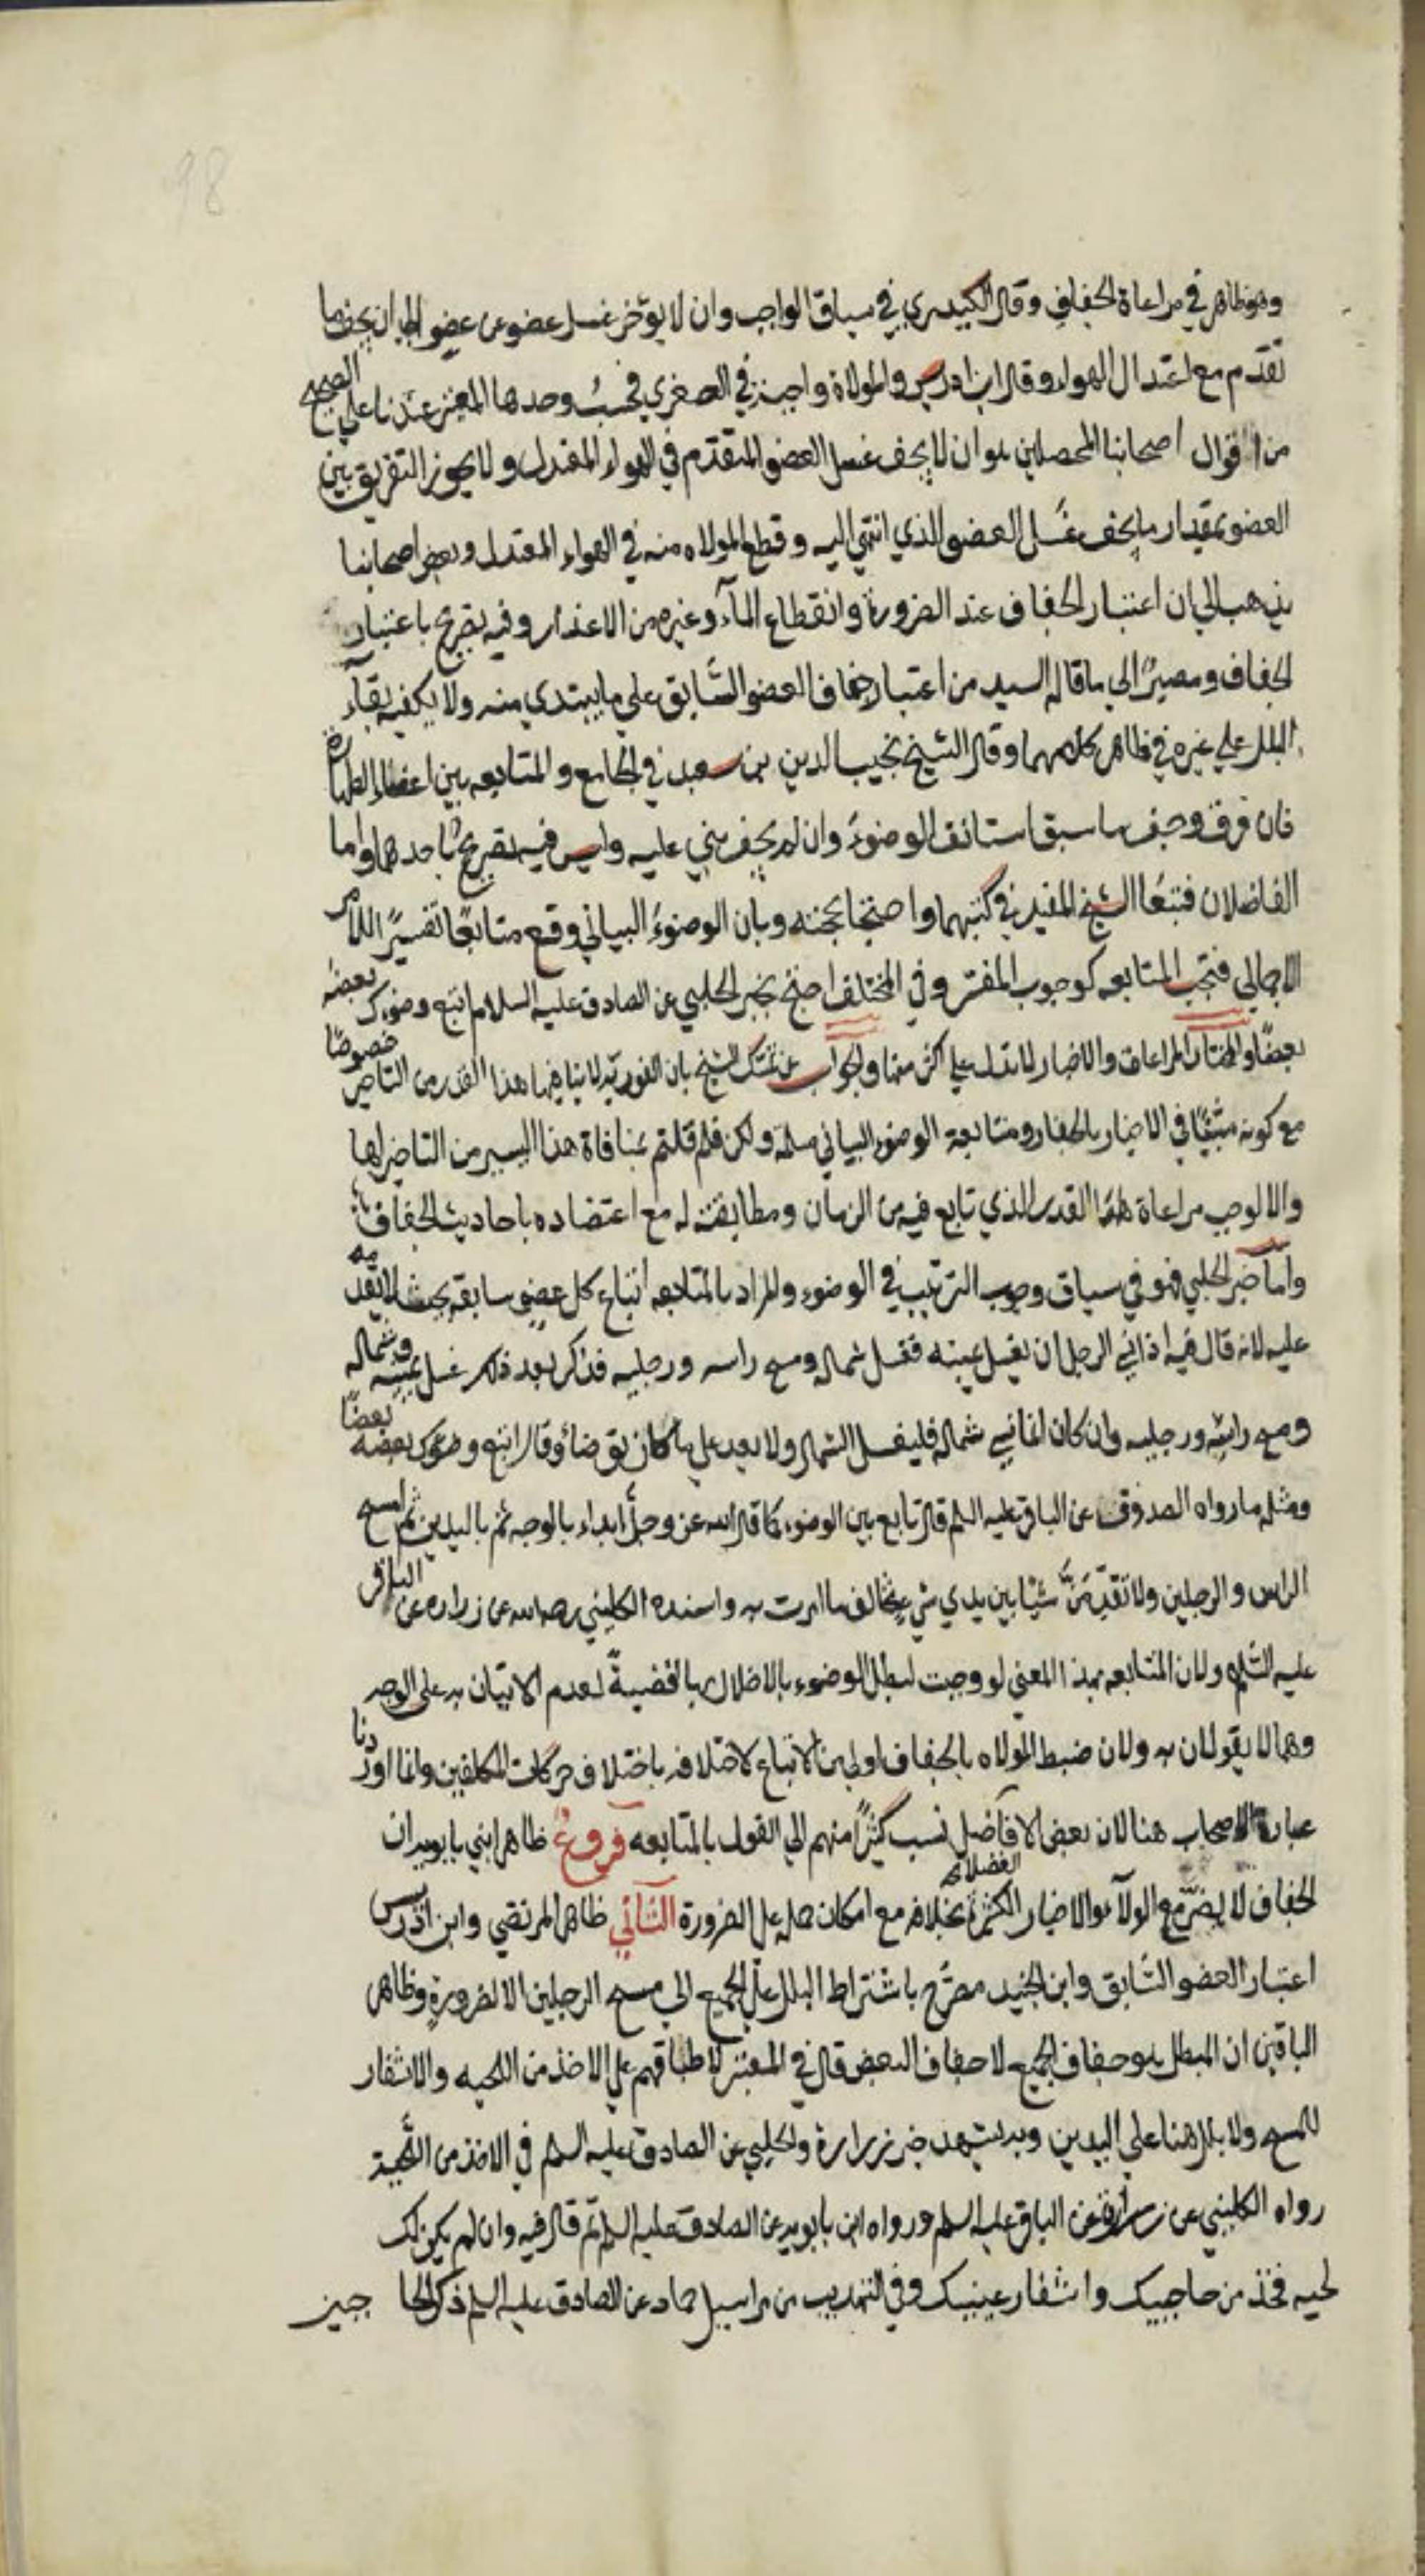 98
وهو ظاهر في مراعاة الجفاف وقال الكيدري في سياق الواجب وان لا يؤخر غسل عضو عن عضو الى ان يجف ما
تقدم مع اعتدال الهواء وقال ابن ادريس والموالاة واجبة في الصغرى فحسب وحدها المعتبر عندنا على الصحيح
من اقوال اصحابنا المحصلين هو ان لا يجف غسل العضو المتقدم في الهواء المعتدل ولا يجوز التفريق بين
العضو بمقدار ما يجف غسل العضو الذي انتهى اليه وقطع الموالاه منه في الهواء المعتدل وبعض اصحابنا
يذهب الى ان اعتبار الجفاف عند الضرورة وانقطاع المآء وغيره من الاعذار وفيه تصريح باعتبار
الجفاف ومصيرٌ الى ما قاله السيد من اعتبار جفاف العضو السَّابق على ما يبتدي منه ولا يكفيه بقآء
البلل على غيره في ظاهر كلامهما وقال الشيخ نجيب الدين بن سعيد في الجامع والمتابعه بين اعضاء الطهارة
فان فرق وجف ما سبق استانف الوضوء وان لم يجف بنى عليه وليس فيه تصريح باحدهما واما
الفاضلان فتبعا الشيخ المفيد في كتبهما واحتجا بحجته وبان الوضوء البياني وقع متابعًا تفسيرًا للامر
الاجمالي فتجب المتابعه كوجوب المفسر وفي المختلف احتج بخبر الحلبي عن الصادق عليه السلام اتبع وضوءك بعضه
بعضًا والمختار المراعاة والاخبار لا تدل على اكثر منها والجواب عن تمسك الشيخ بان الفورية لا ينافيها هذا القدر من التاخير خصوصًا
مع كونه مثبتًا في الاخبار بالجفاف ومتابعة الوضوء البياني مسلمة ولكن فلم قلتم بمنافاة هذا اليسير من التاخير لها
والا لوجب مراعاة هذا القدر الذي تابع فيه من الزمان ومطابقته له مع اعتضاده باحاديث الجفاف
واما خبر الحلبي فهو في سياق وجوب الترتيب في الوضوء والمراد بالمتابعه اتباع كل عضو سابقه بحيث لا يقدمه
عليه لانه قال فيه اذا نسي الرجل ان يغسل يمينه فغسل شماله ومسح راسه ورجليه فذكر بعد ذلك غسل يمينه وشماله
ومسح راسه ورجليه وان كان انما نسي شماله فليغسل الشمال ولا يعيد على ما كان توضأ وقال اتبع وضوءك بعضه بعضًا
ومثله ما رواه الصدوق عن الباقر عليه السلم قال تابع بين الوضوء كما قال الله عز وجل ابداء بالوجه ثم باليدين ثم امسح
الراس والرجلين ولا تقدّمنَّ شيئا بين يدي شيء تخالف ما امرت به واسنده الكليني رحمه الله عن زراره عن الباقر
عليه السَّلم ولان المتابعه بهذا المعنى لو وجبت لبطل الوضوء بالاخلال بها قضيةً لعدم الاتيان به على الوجه
وهما لا يقولان به ولان ضبط الموالاه بالجفاف اولى من الاتباع لاختلافه باختلاف حركات المكلفين وانما اوردنا
عبارة الاصحاب هنا لان بعض الافاضل نسب كثيرًا منهم الى القول بالمتابعه فروع ظاهر ابني بابويه ان
الجفاف لا يضر مع الولآء والاخبار الكثيرة بخلافه مع امكان حمله على الضرورة الثاني ظاهر المرتضى وابن ادريس
الفضلاء
اعتبار العضو السَّابق وابن الجنيد مصرّح باشتراط البلل على الجميع الى مسح الرجلين الا لضرورةٍ وظاهر
الباقين ان المبطل هو جفاف الجميع لا جفاف البعض قال في المعتبر لاطباقهم على الاخذ من اللحيه والاشفار
للمسح ولا بلل هنا على اليدين وبه يشهد خبر زرارة والحلبي عن الصادق عليه السلم في الاخذ من اللّحية
رواه الكليني عن زرارة عن الباقر عليه السلم ورواه ابن بابويه عن الصادق عليه السلم ثم قال فيه وان لم يكن لك
لحيه فخذ من حاجبيك واشفار عينيك وفي التهذيب من مراسيل حماد عن الصادق عليه السلم ذكر الحا جبين